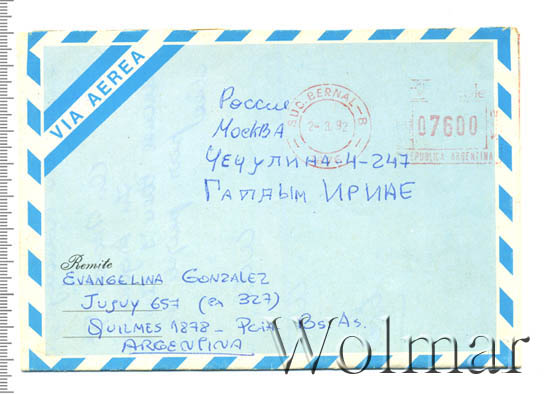 VIA AEREA
SUC. BERNAL-R
2-3.92
07600
REPUBLICA ARGENTINA
Россия
Москва
Чечулина-4-247
Гатдым Ирине
Remite
EVANGELINA GONZALEZ
JUJUY 657 (ex 327)
QUILMES 1878 - Pcia Bs. As.
ARGENTINA
Wolmar